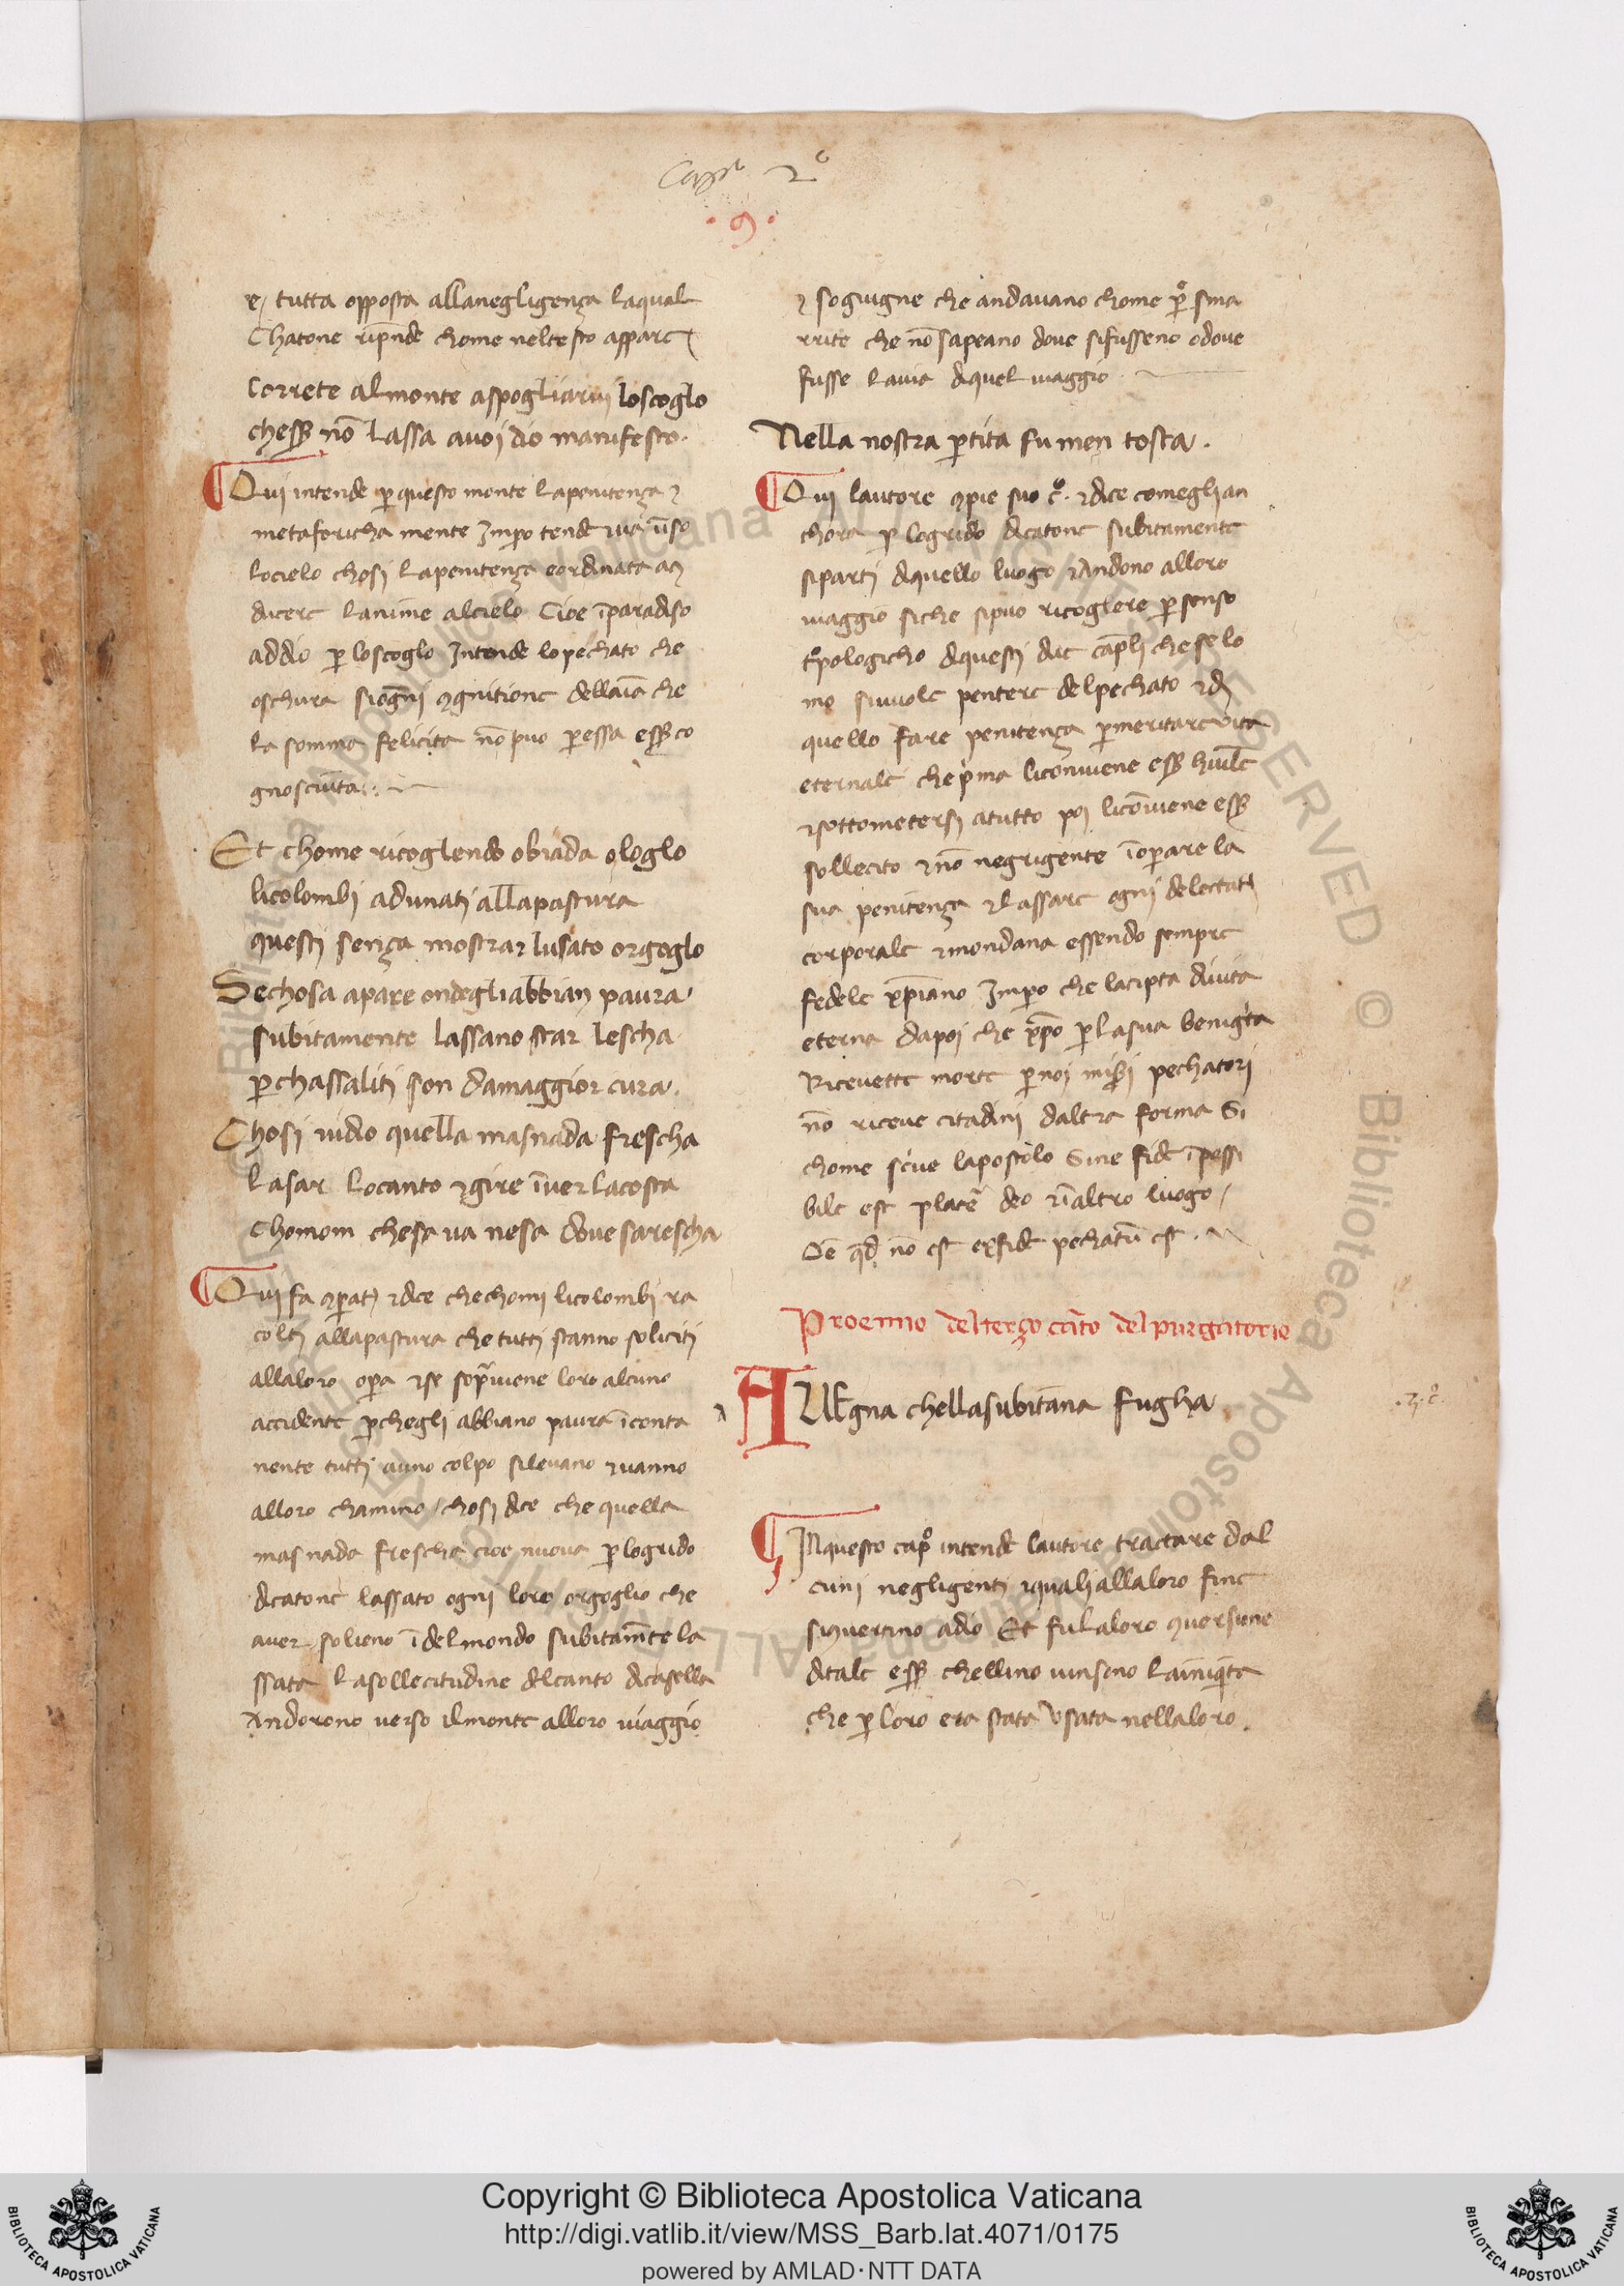 Cap° 2°
· 9 ·
e / tutta opposta allanegligença laqual
Chatone rip̄nde chome neltesto appare
Correte almonte aspogliarvi loscoglo
chess̄ nō lassa avoi dio manifesto.
Qui intende p̱ questo monte lapenitença ⁊
metaforicha mente Imp̱o tende ⁊va ūso
locielo chosi lapenitença eordinata a
ducere lanime alcielo Cioe īparadiso
addio p̱ loscoglo Intende lo pechato che
oschura si ogni ꝯgnitione dellaīa che
la somma felicita nō puo p̱essa ess̄ co
gnosciuta
Et chome ricoglendo obiada ologlo
licolombi adunati allapastura
questi sença mostrar lusato orgoglo
Sechosa apare ondegliabbian paura
subitamente lassano star lescha
p̱chassaliti son damaggior cura.
Chosi vidio quella masnada frescha
Lasar locanto ⁊gire īver lacosta
Chomom cheſa va nesa dove sarescha
Qui fa ꝯparat̄ ⁊dice chechomi licolombi ra
colti allapastura che tutti stanno soliciti
allaloro op̱a ⁊se sop̄viene loro alcuno
accidente p̱chegli abbiano paura īconta
nente tutti auno colpo silevano ⁊vanno
alloro chamino / chosi dice che quella
masnada frescha cioe nuova p̱ logrido
dicatone lassato ogni loro orgoglio che
aver solieno ī del mondo subitam̄te la
ssata lasollecitudine delcanto dicasella
Andorono verso ilmonte alloro viaggio
⁊ sogiugne che andavano chome p̱° sma
rrite che nō sapeano dove sifusseno odove
fusse lavia diquel viaggio
Nella nostra p̱tita fu men tosta.
Qui lautore ꝯpie suo c°. ⁊dice comeglian
chora p̱ logrido dicatone subitamente
siparti diquello luogo ⁊Andono alloro
viaggio siche sipuo ricogliere p̱ senso
t°pologicho diquesti due cap̄li che se lo
mo sivuole pentere delpechato ⁊di
quello fare penitença p̱meritare vita
eternale che p̱ma liconviene ess̄ humīle
⁊sottometersi atutto poi licōviene ess̄
sollecito ⁊nō negrigente ī op̱are la
sua penitença ⁊Lassare ogni delectat̄
corporale ⁊mondana essendo sempre
fedele xp̄iano Imp̱o che lacipta divita
eterna dapoi che xp̄o p̱ lasua beniḡta
Ricevette morte p̱ noi mis̄i pechatori
nō riceve citadini daltra forma Si
chome sc̄ive lapostolo Sine fide īpossi
bile est placē deo ⁊ī altro luogo /
Oē q̄d nō est ex fide pechatū est.
Proemio del terço cāto del purgatorio
AUEgna chellasubitana fugha
· 3 · c°
INquesto cap° intende lautore tractare dal
cuni negligenti ⁊quali allaloro fine
siꝯvertino adio Et fu laloro ꝯversione
ditale ess̄ chellino vinsono lainiq̄ta
che p̱ loro era stata usata nellaloro
Copyright © Biblioteca Apostolica Vaticana
http://digi.vatlib.it/view/MSS_Barb.lat.4071/0175
powered by AMLAD·NTT DATA
BIBLIOTECA APOSTOLICA VATICANA
BIBLIOTECA APOSTOLICA VATICANA